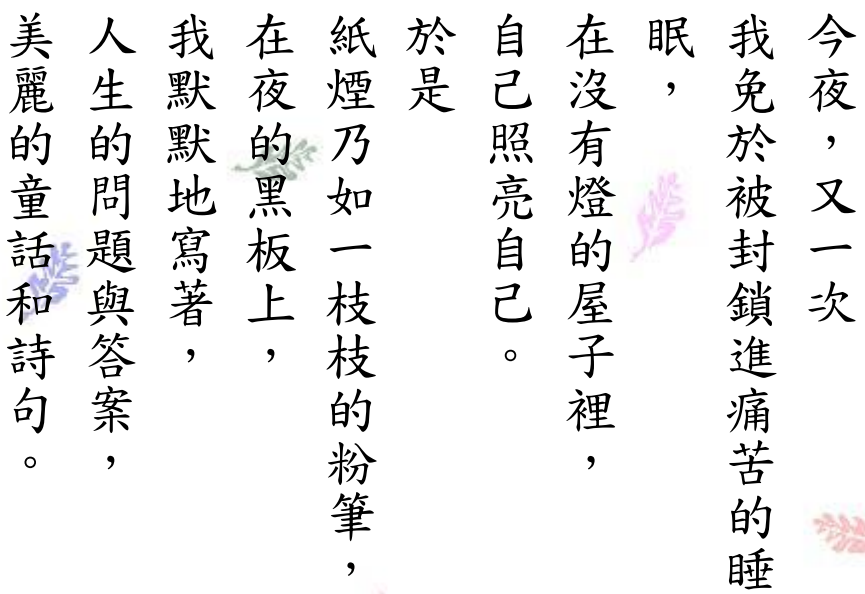 今夜，又一次
我免於被封鎖進痛苦的睡
眠，
在沒有燈的屋子裡，
自己照亮自己。
於是
紙煙乃如一枝枝的粉筆，
在夜的黑板上，
我默默地寫著，
人生的問題與答案，
美麗的童話和詩句。